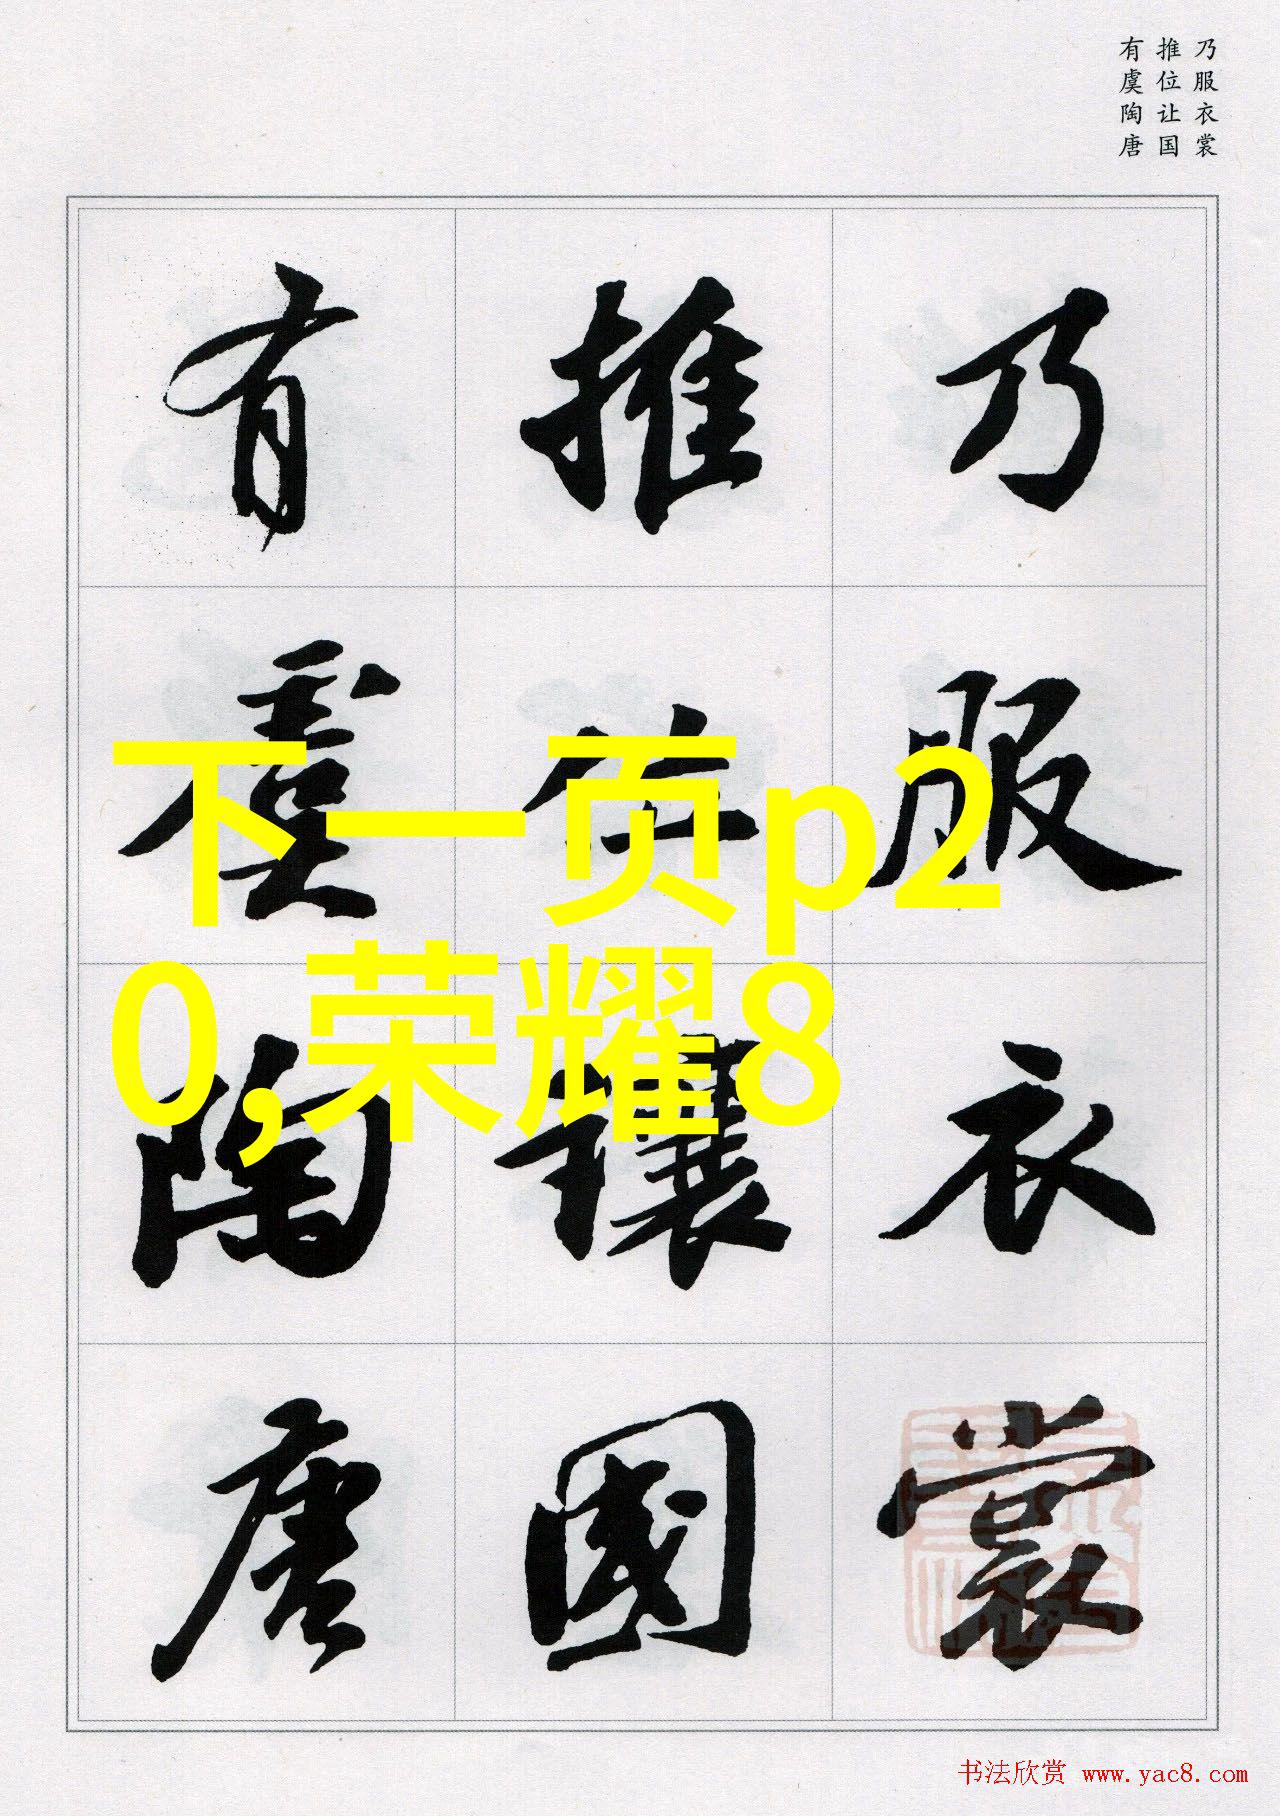 乃服衣裳
推位让国
有虞陶唐
乃服衣裳
推位讓國
有虞陶唐
下一页p2
0,荣耀8
书法欣赏 www.yac8.com